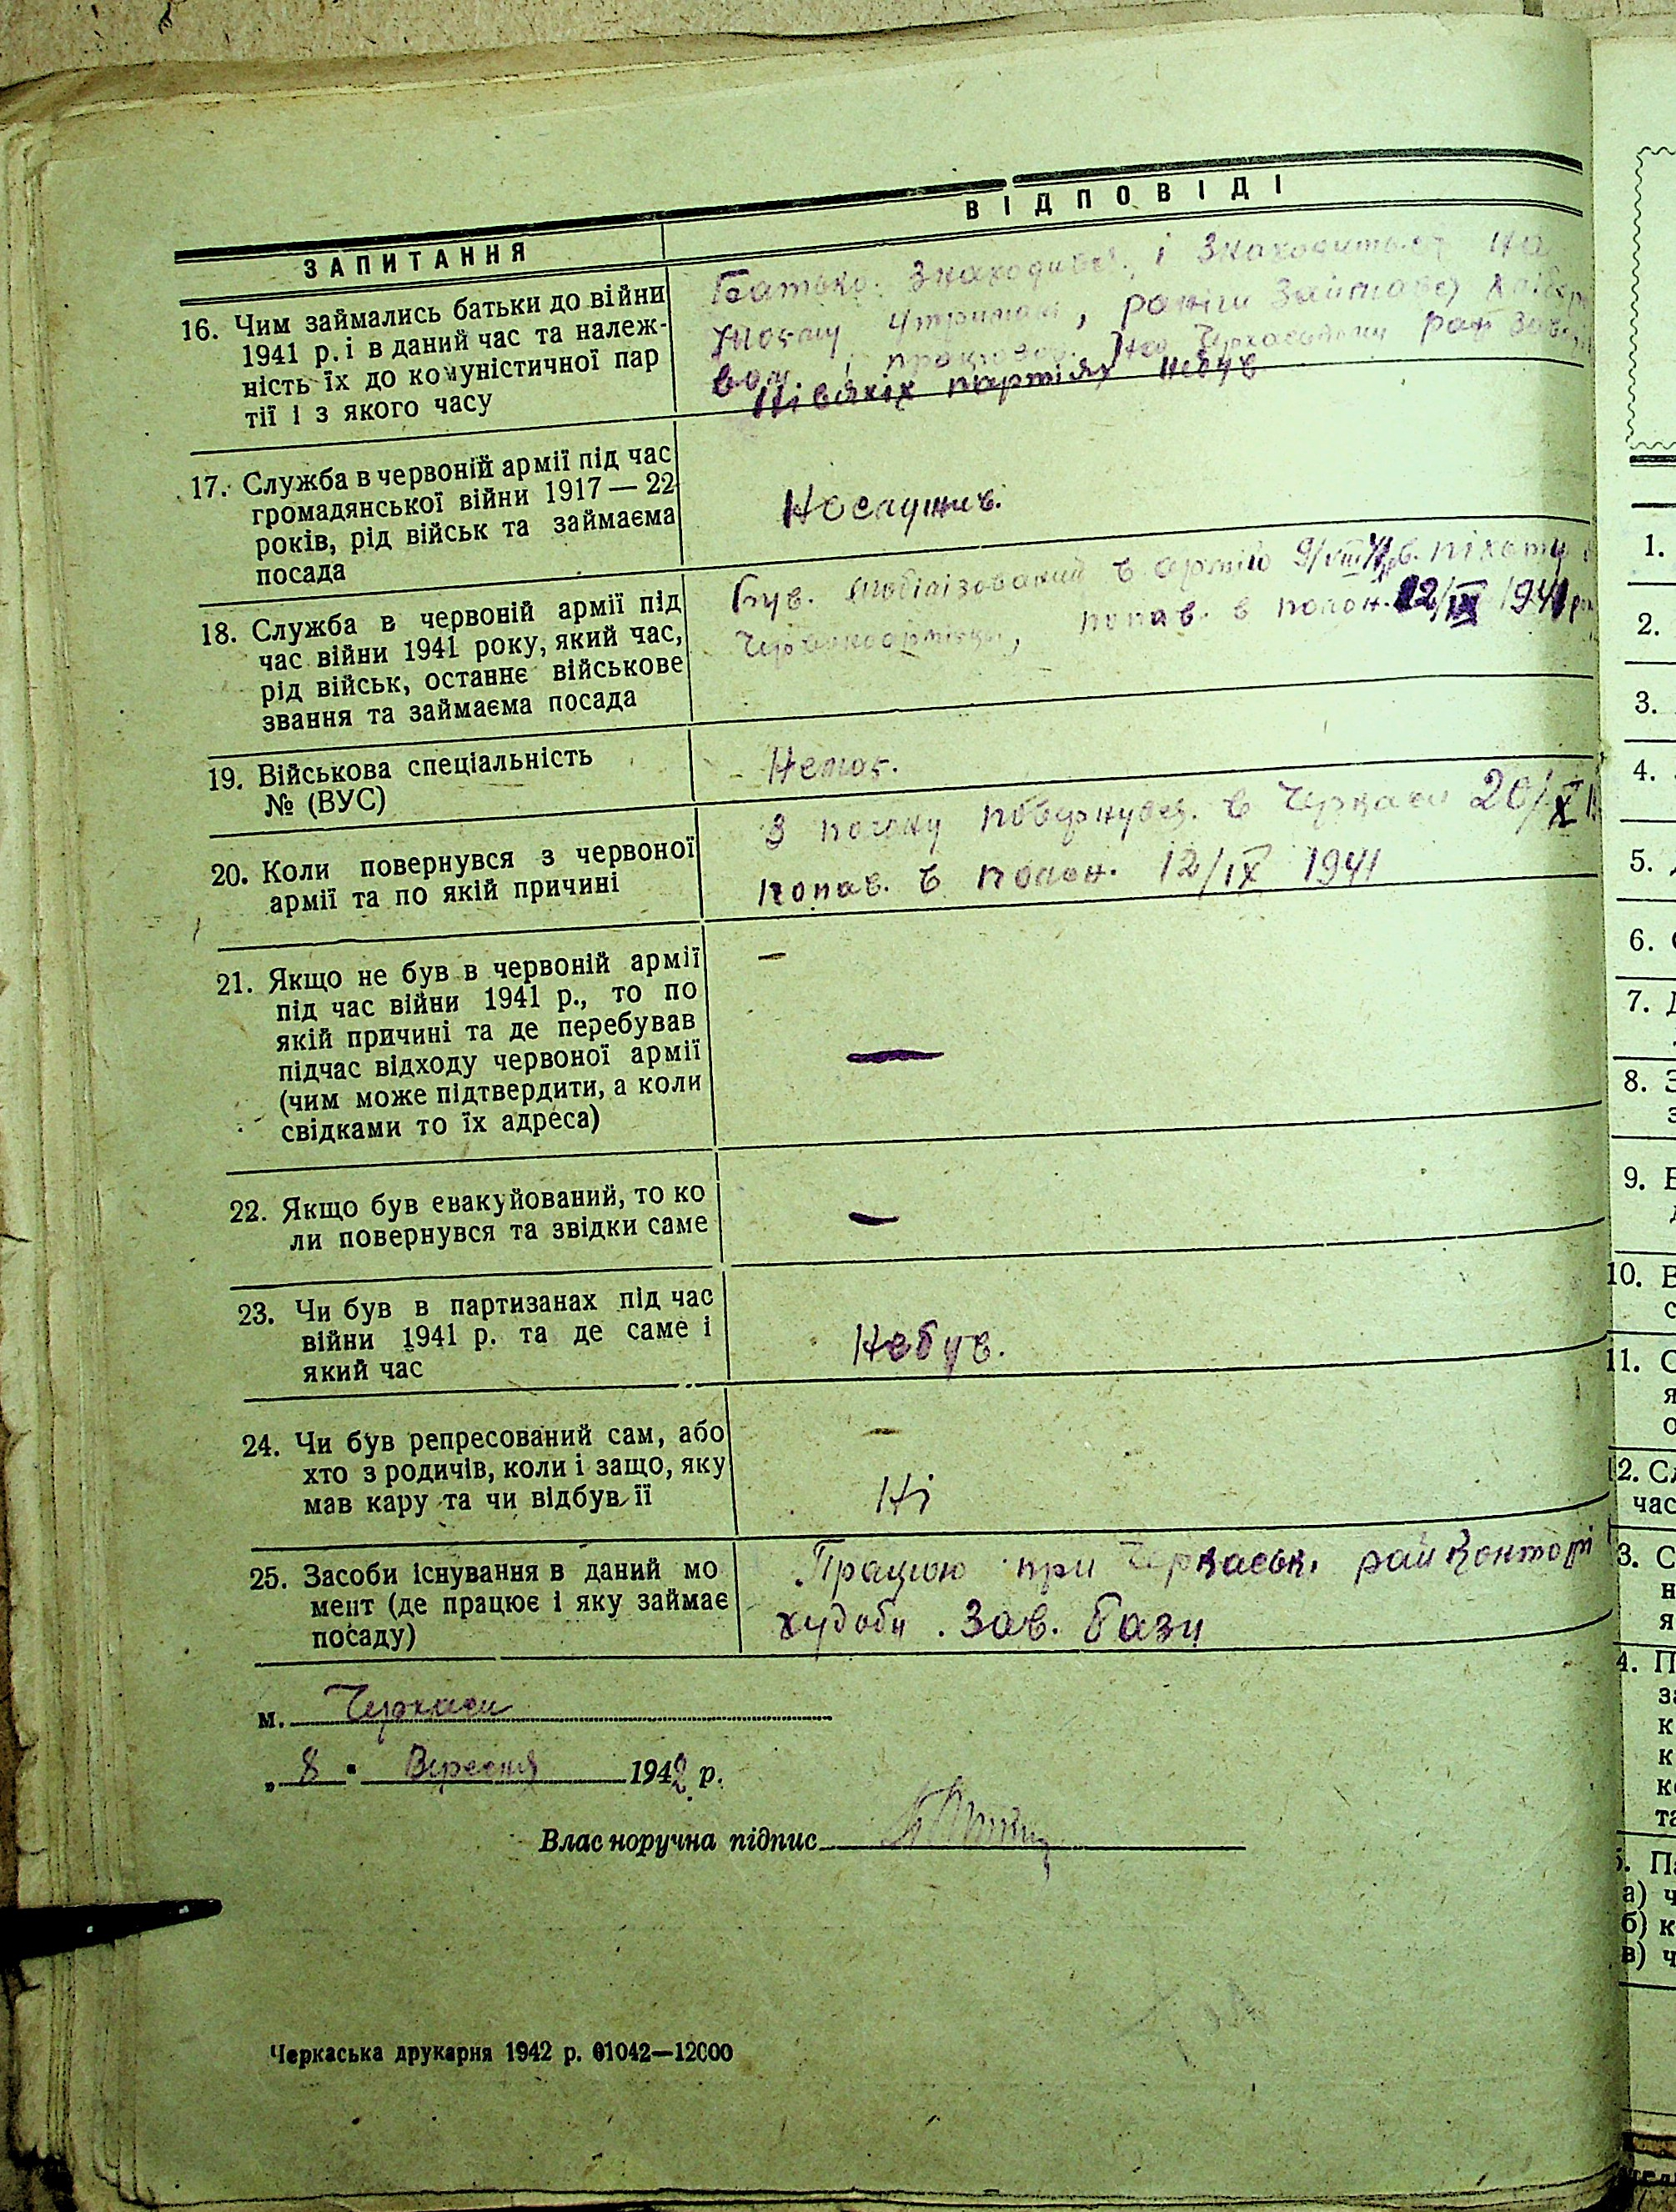 ЗАПИТАННЯ
ВІДПОВІДІ
16. Чим займались батьки до війни
1941 р. і в даний час та належ-
ність їх до комуністичної пар
тії і з якого часу
Батько. Знаходився, і знаходиться на
моєму утриман, раніш займався
вом, працював. на Черкаському
Нівякіх партіях небув
17. Служба в червоній армії під час
громадянської війни 1917 — 22
років, рід військ та займаєма
посада
Неслужив.
18. Служба в червоній армії під
час війни 1941 року, який час,
рід військ, останнє військове
звання та займаєма посада
Був. мобілізований в армію 9/VIII 41 р в. піхоту
Червоноармієць, попав. в полон. 12/IX 1941 р
19. Військова спеціальність
№ (ВУС)
Немає.
20. Коли повернувся з червоної
армії та по якій причині
З полону повернувся. в Черкаси 20/X
попав. в полон. 12/IX 1941
21. Якщо не був в червоній армії
під час війни 1941 р., то по
якій причині та де перебував
підчас відходу червоної армії
(чим може підтвердити, а коли
свідками то їх адреса)
—
—
22. Якщо був евакуйований, то ко
ли повернувся та звідки саме
—
23. Чи був в партизанах під час
війни 1941 р. та де саме і
який час
Небув.
24. Чи був репресований сам, або
хто з родичів, коли і защо, яку
мав кару та чи відбув її
–
Ні
25. Засоби існування в даний мо
мент (де працює і яку займає
посаду)
Працюю при Черкаськ. райконторі
худоби. Зав. бази
м. Черкаси
„ 8 " Вересня 1942 р.
Власноручна підпис
Черкаська друкарня 1942 р. 01042—12000
1.
2.
3.
4.
5.
6.
7.
8.
9.
10.
11.
12.
час
а) ч
б) к
в) ч